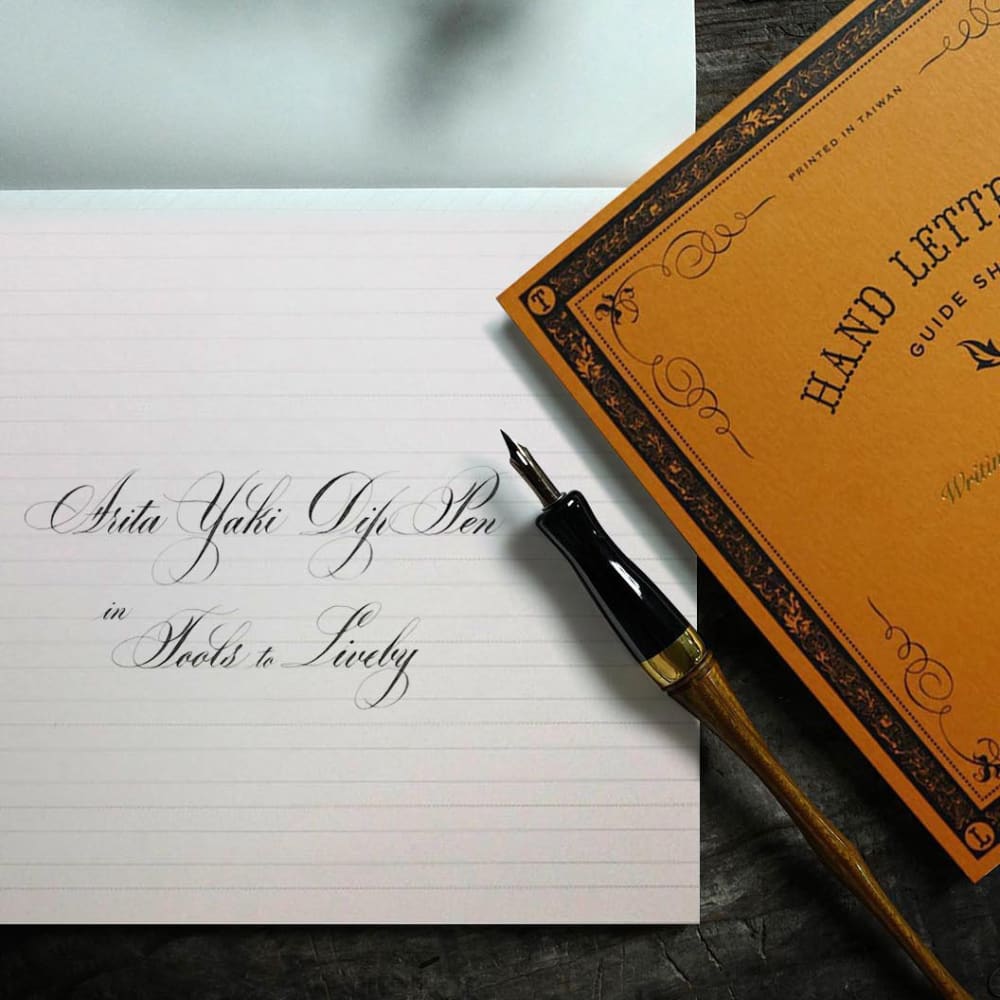 Arita Yaki Dip Pen
in
Tools to Liveby
PRINTED IN TAIWAN
HAND
GUIDE
T
L